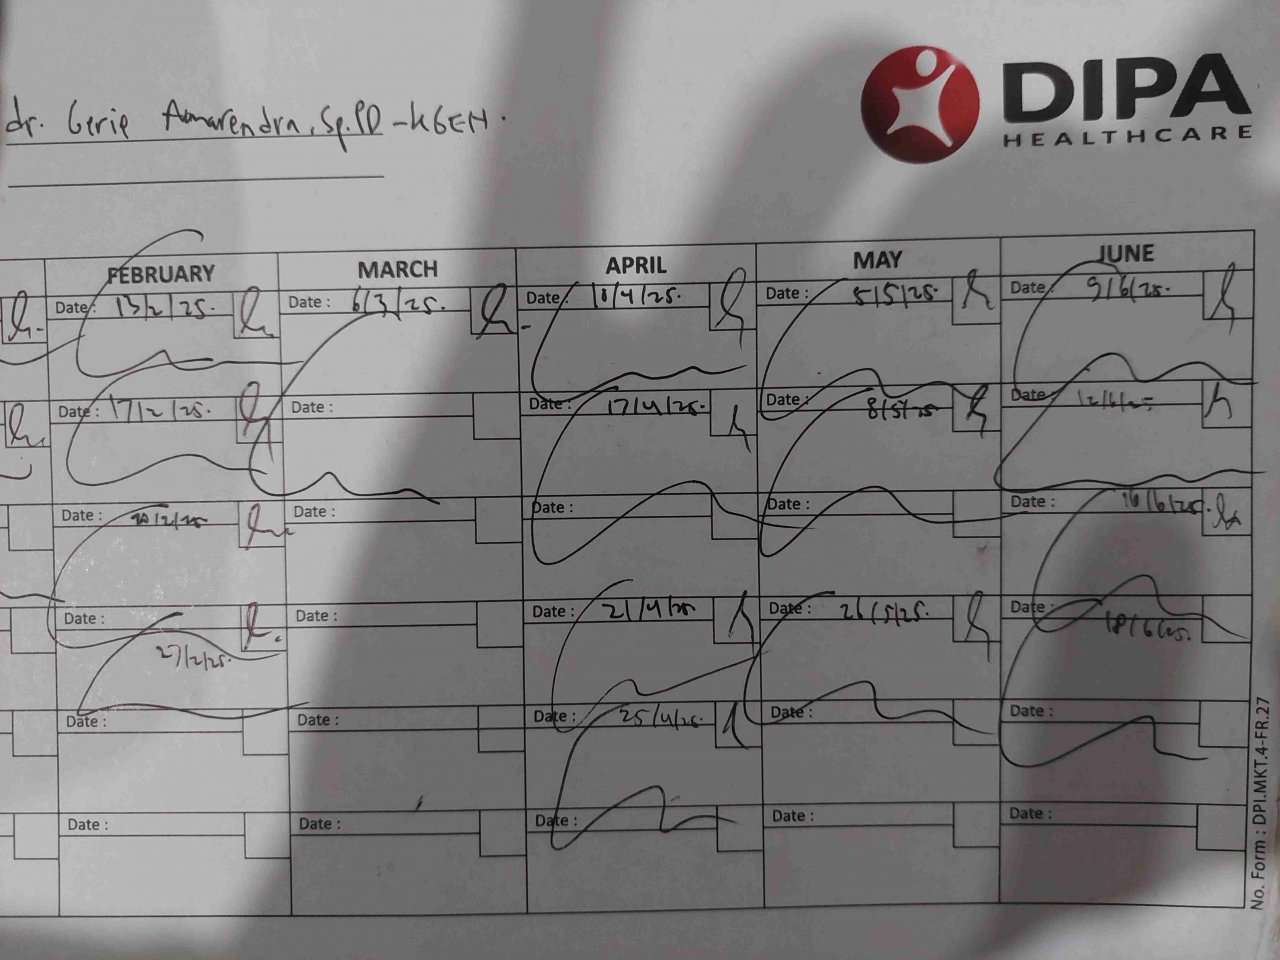 DIPA
HEALTHCARE
dr. Gerie Amarendra, Sp.PD-KGEH.
FEBRUARY MARCH APRIL MAY JUNE
Date: 13/2/25. Date: 6/3/25. Date: 10/4/25. Date: 5/5/25. Date: 9/6/25.
Date: 17/2/25. Date: Date: 17/4/25. Date: 8/5/25 Date: 12/6/25
Date: 20/2/25 Date: Date: Date: Date: 16/6/25.
Date: 27/2/25. Date: Date: 21/4/25 Date: 26/5/25. Date: 18/6/25.
Date: Date: Date: 25/4/25. Date: Date:
Date: Date: Date: Date: Date:
No. Form : DPI.MKT.4-FR.27